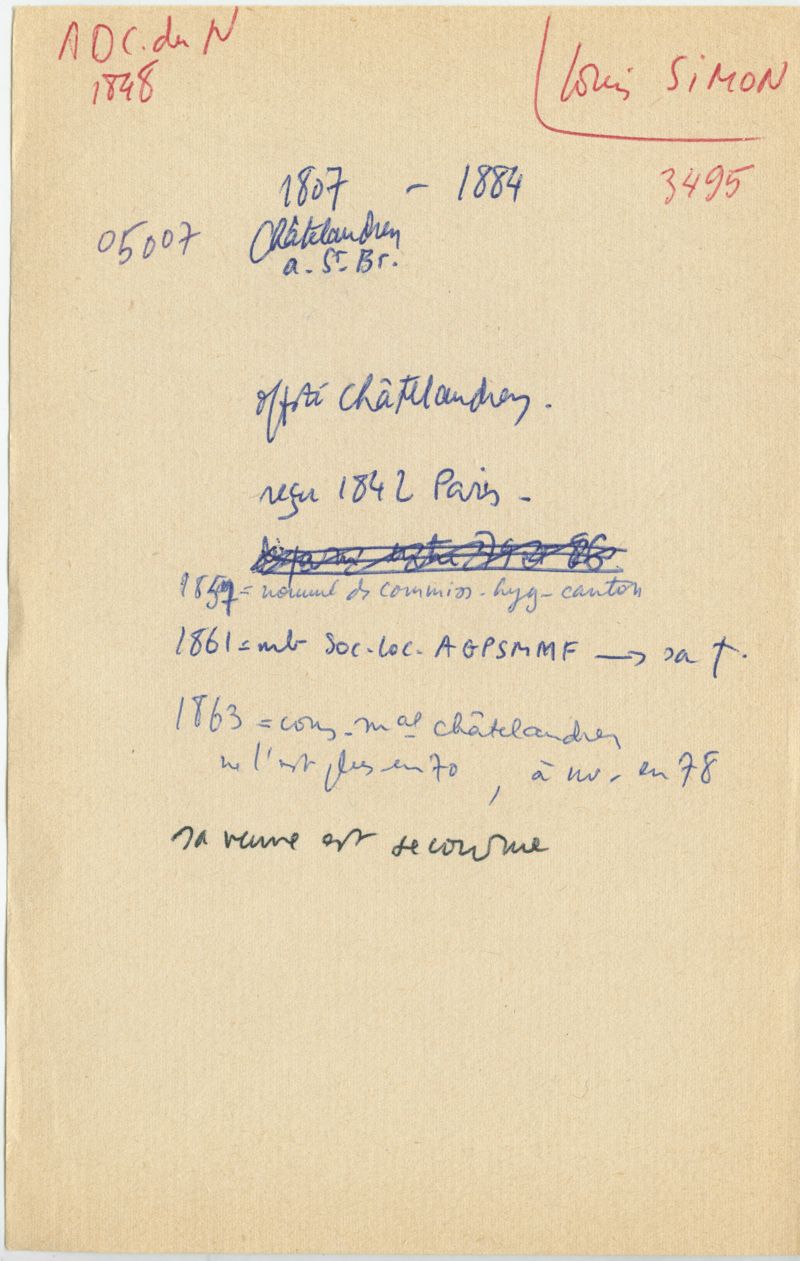 A D C. du N
1848
Louis SIMON
3495
1807 - 1884
05007 Châtelaudren
a. St. Br.
off. té Châtelaudren.
reçu 1842 Paris -
1857 = nommé ds commiss. hyg. canton
1861 = mb Soc. loc. AGPSMMF → sa †.
1863 = cons. mal Châtelaudren
ne l'est plus en 70, à nv. en 78
sa veuve est secourue